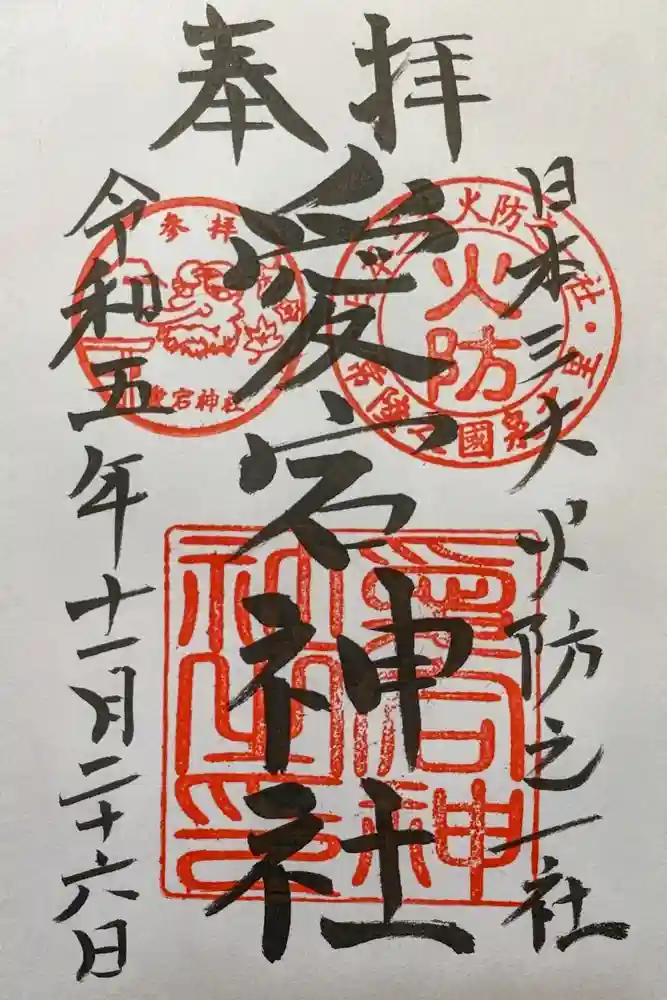 奉拝
日本三大火防之一社
愛宕神社
令和五年十一月二十六日
火防
参拝
愛宕神社
愛宕神社之印